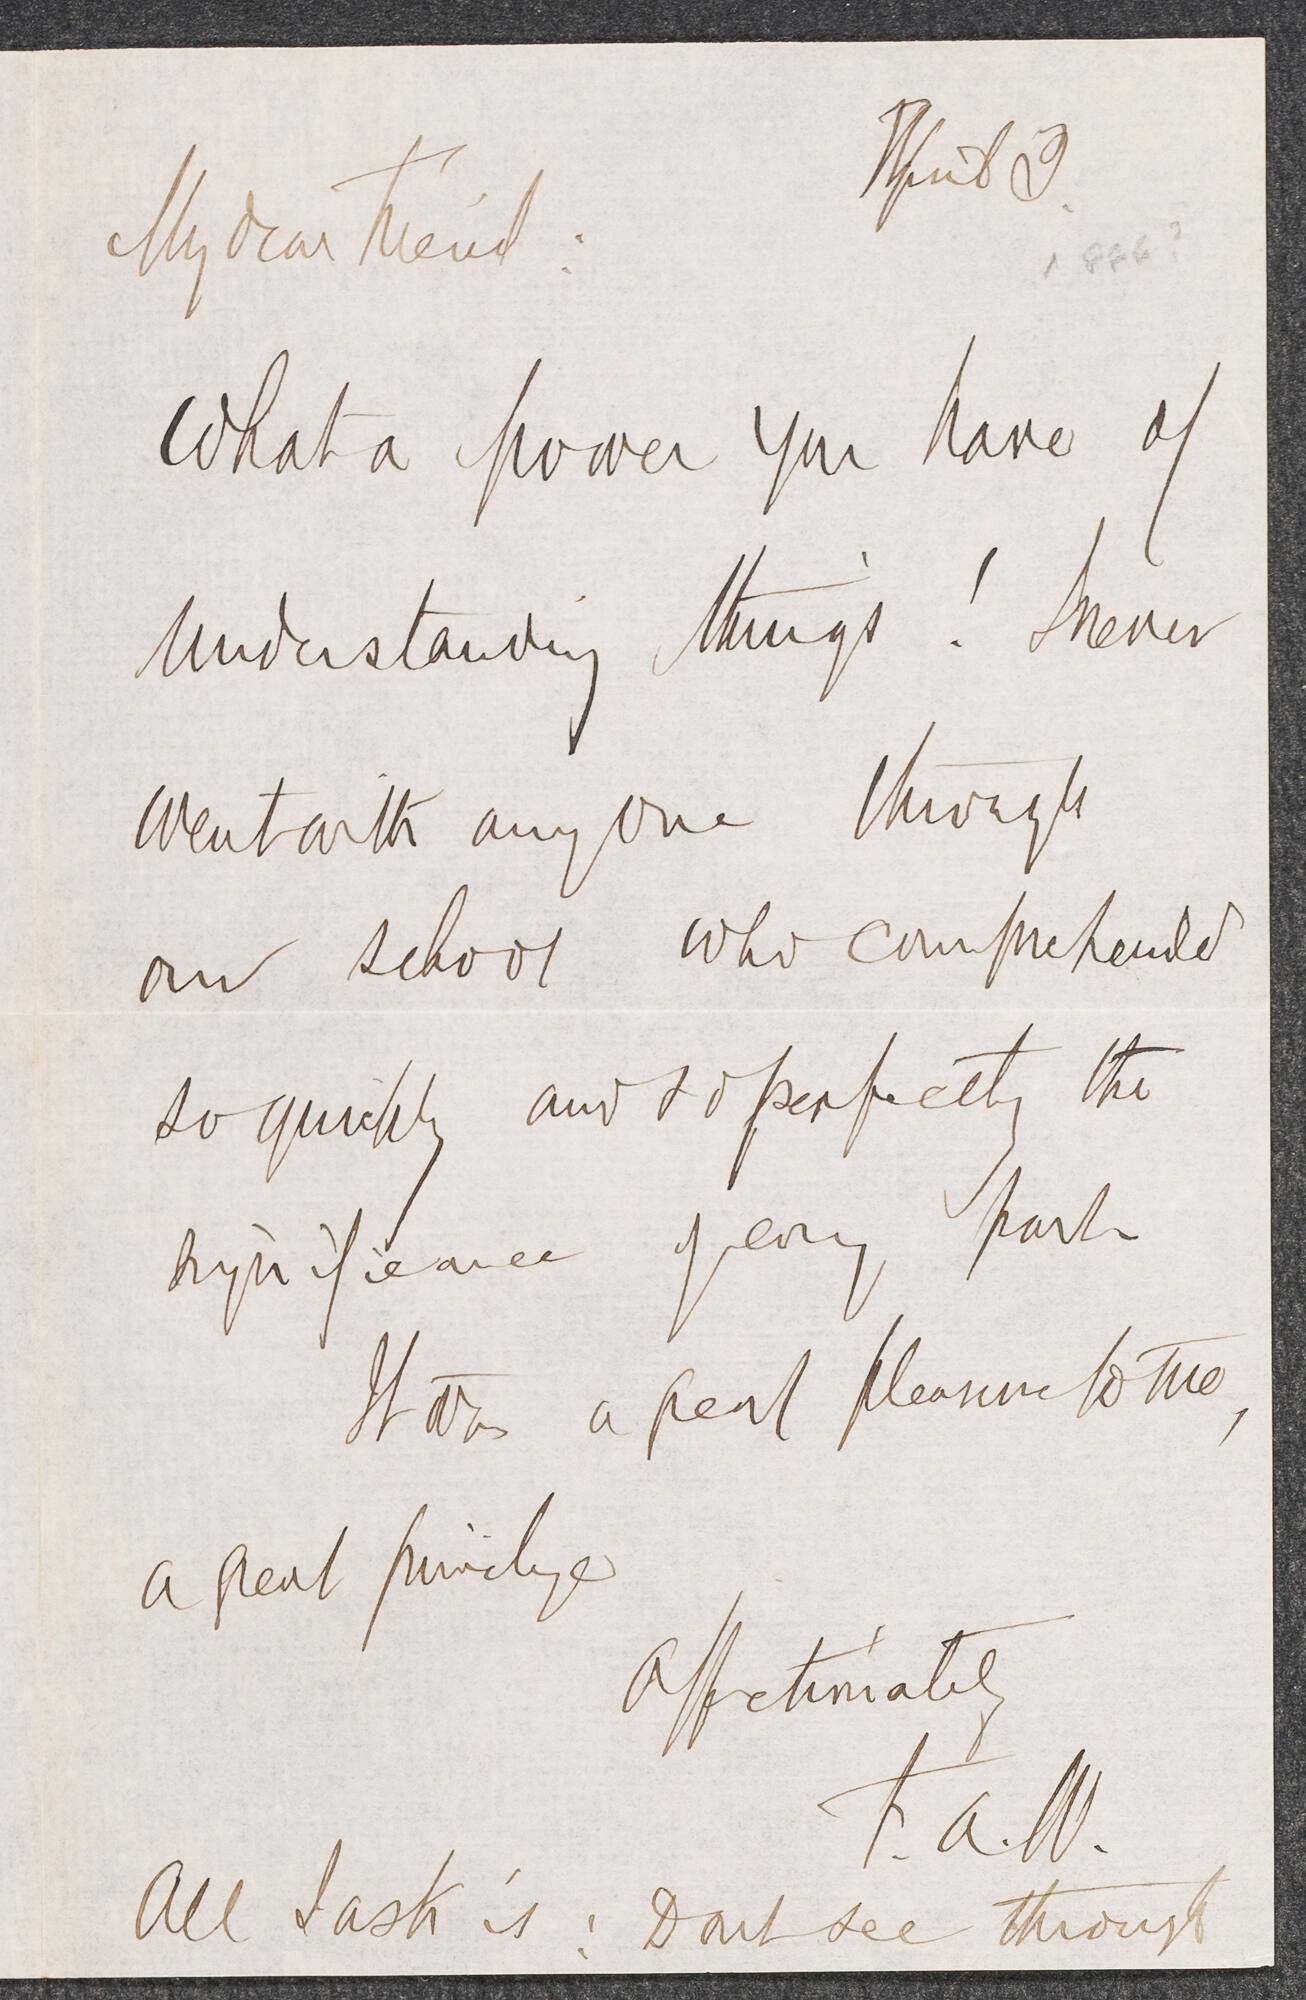 April 3.
1886?
My dear friend :
What a power you have of
understanding things ! I never
went with any one through
our school who comprehended
so quickly and so perfectly the
significance of every part
It was a great pleasure to me,
a great privilege
Affectionately
F. A. W.
All I ask is : Dont see through